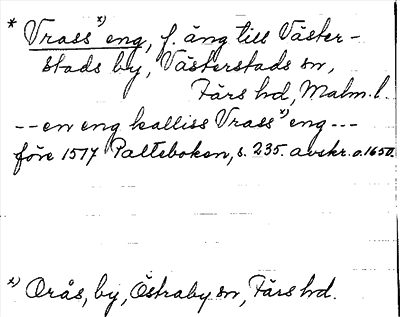 * Vrass*) eng, f. äng till Väster-
stads by, Västerstads sn,
Färs hd, Malm. l.
-- en eng kalliss Vrass*) eng ---
före 1517 Palteboken, s. 235. avskr. o. 1650.
*) Orås, by, Östraby sn, Färs hd.